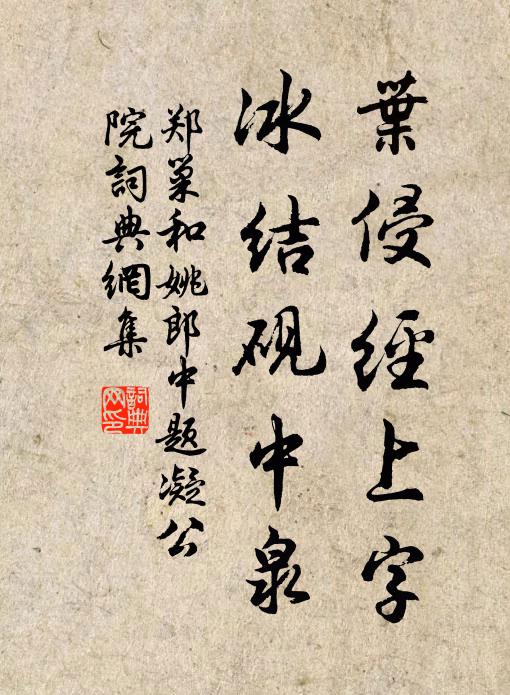 葉侵經上字
冰結硯中泉
郑巢和姚郎中題凝公
院詞典網集
詞典
网印